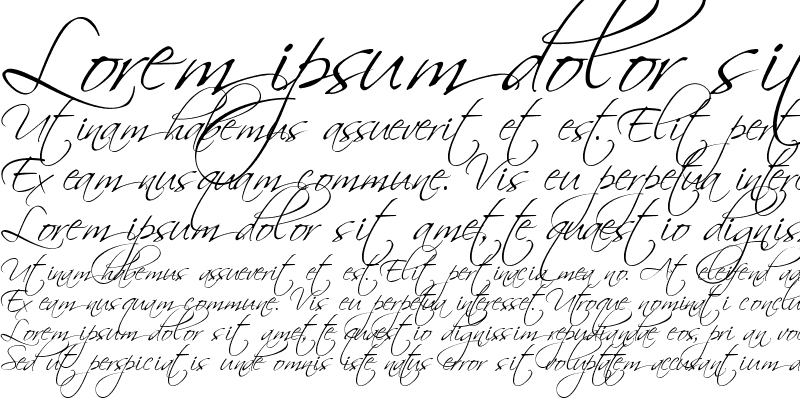 Lorem ipsum dolor sit
Ut inam habemus assueverit et est. Elit pert
Ex eam nusquam commune. Vis eu perpetua inter
Lorem ipsum dolor sit amet, te quaestio dignis
Ut inam habemus assueverit et est. Elit pertinacia mea no. At eleifend
Ex eam nusquam commune. Vis eu perpetua interesset. Utroque nominati conclu
Lorem ipsum dolor sit amet, te quaestio dignissim repudiandae eos, pri an
Sed ut perspiciatis unde omnis iste natus error sit voluptatem accusantium